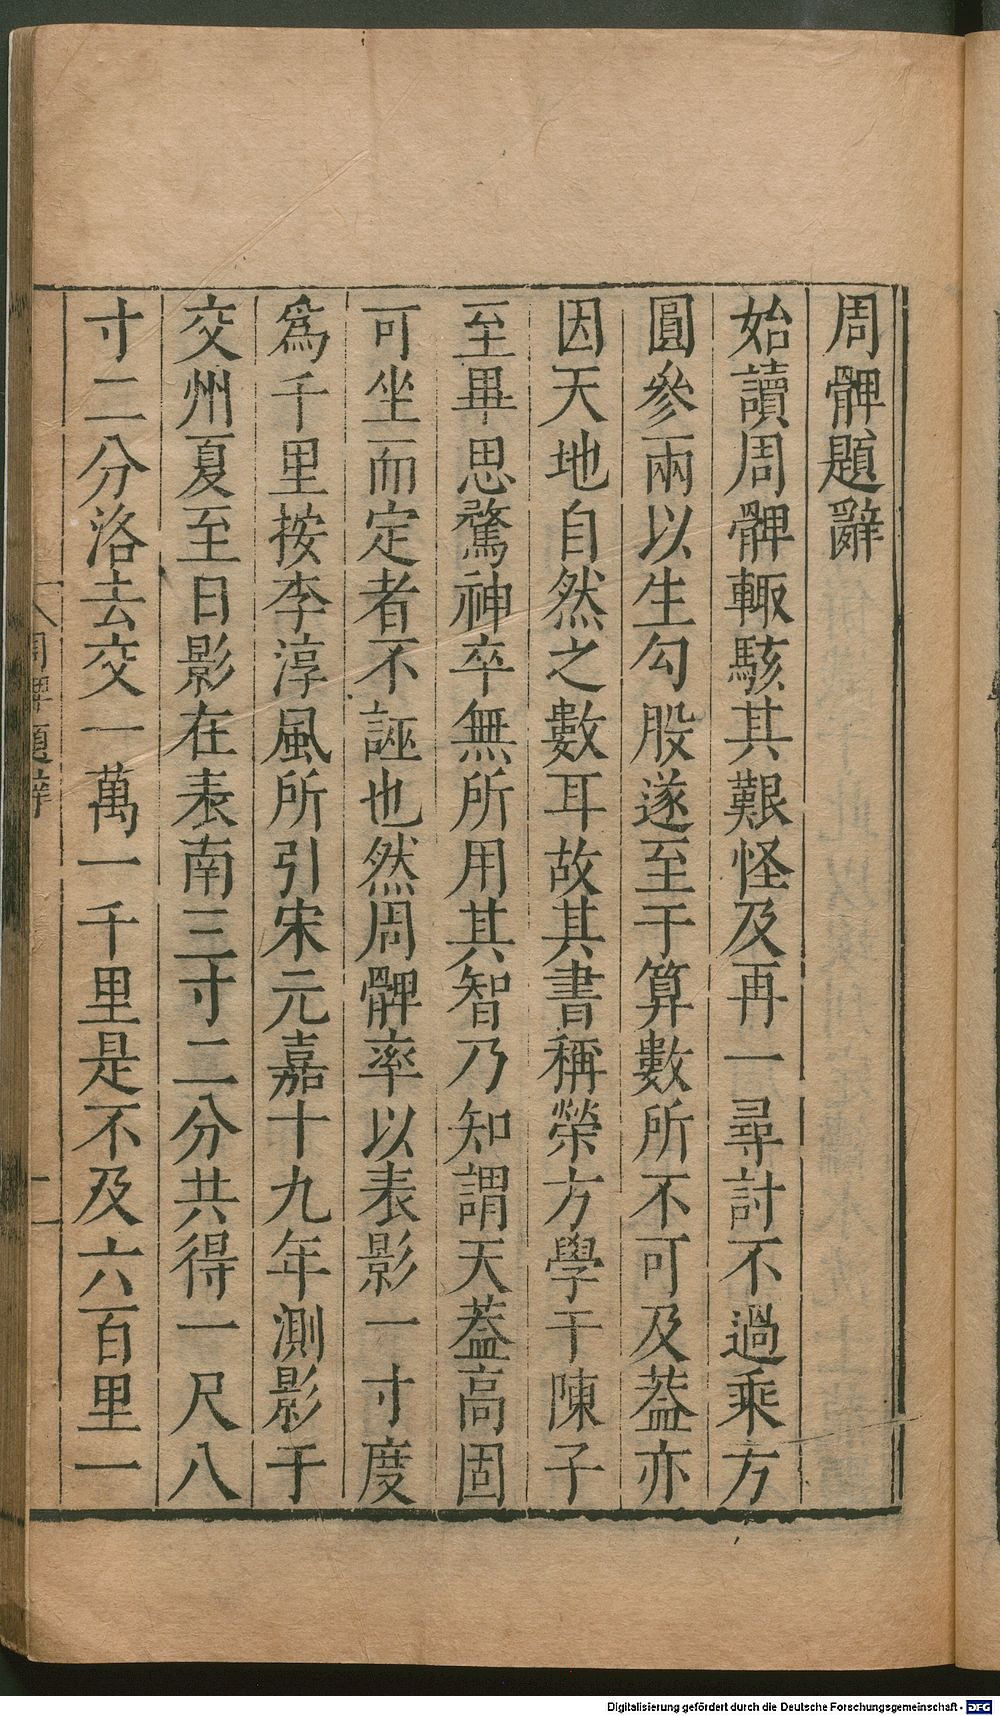 周髀題辭
始讀周髀輙駭其艱怪及再一尋討不過乘方
圓參兩以生勾股遂至于算數所不可及葢亦
因天地自然之數耳故其書稱榮方學于陳子
至畢思驚神卒無所用其智乃知謂天葢高固
可坐而定者不誣也然周髀率以表影一寸度
爲千里按李淳風所引宋元嘉十九年測影于
交州夏至日影在表南三寸二分共得一尺八
寸二分洛去交一萬一千里是不及六百里一
周髀題辭
二
Digitalisierung gefördert durch die Deutsche Forschungsgemeinschaft - DFG